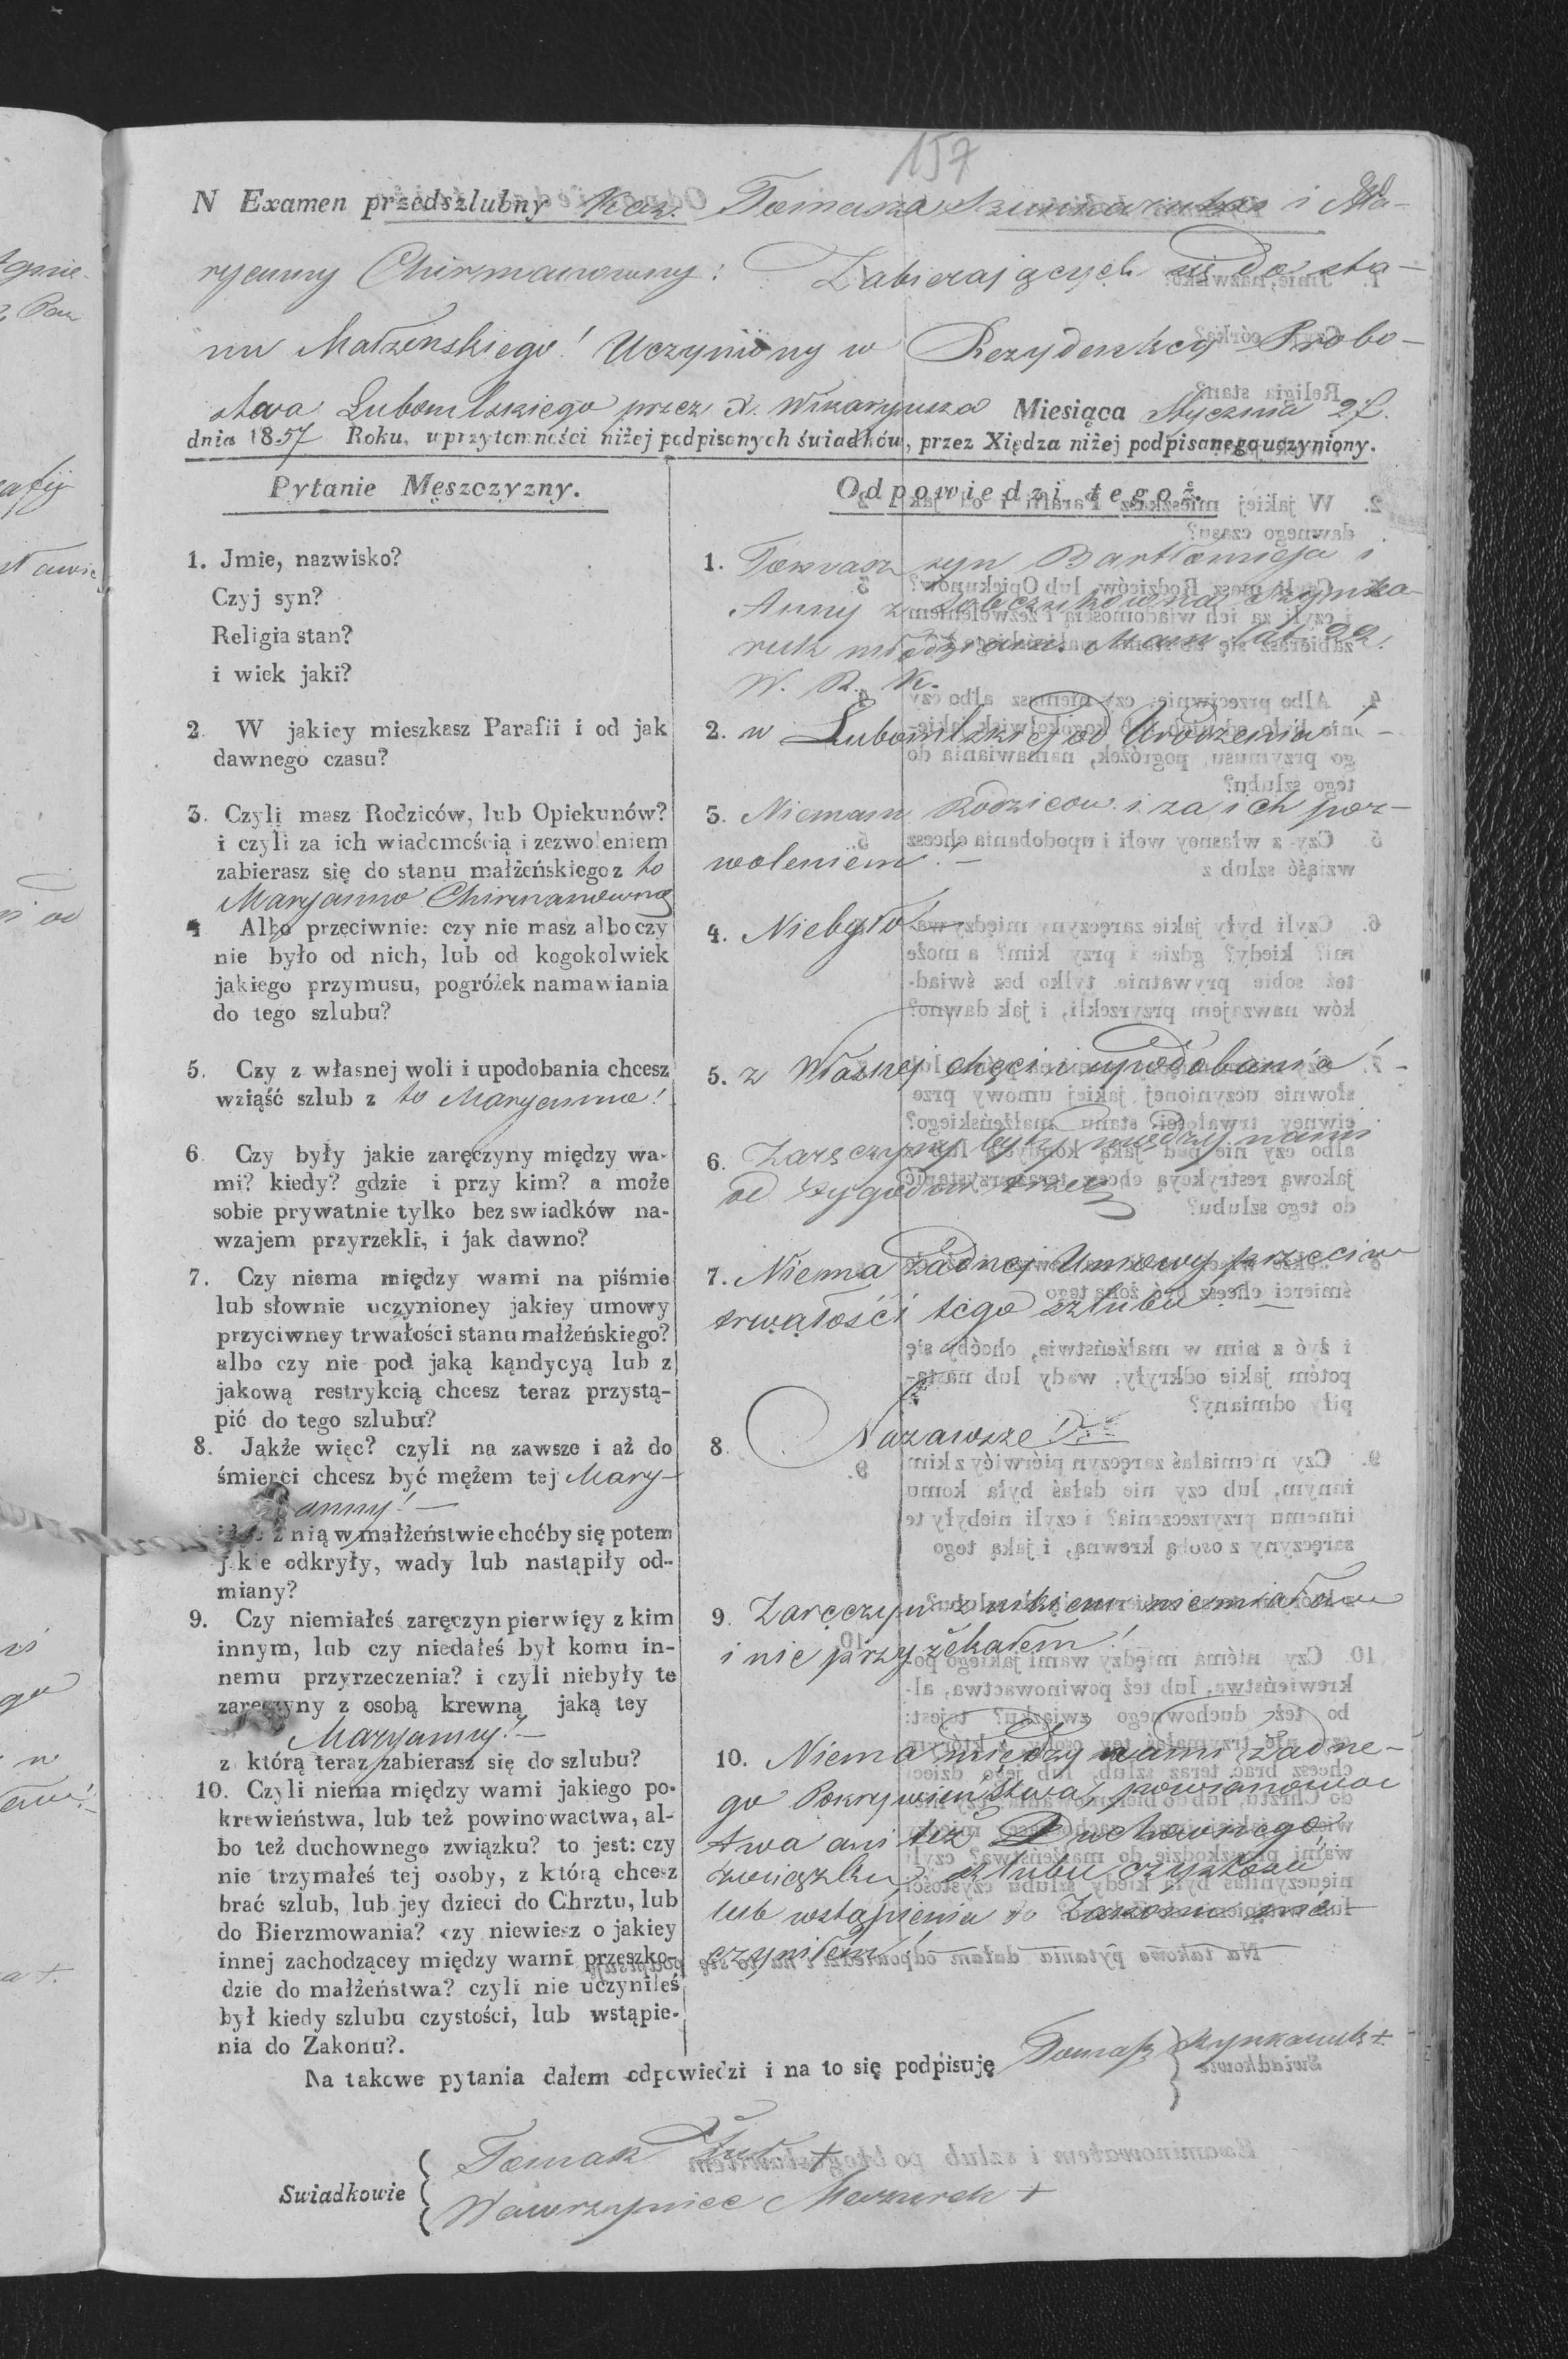 157
N Examen przedszlubny Kaz. Tomasza i Ma-
ryanny Chirmanowny: Zabierających się do sta-
nu Małzenskiego! Uczyniony w Rezydenkcy Probo-
stwa Lubomlskiego przez X. Wikaryusza Miesiąca Stycznia 27.
dnia 1857 Roku, w przytomności niżej podpisanych świadków, przez Xiędza niżej podpisanego uczyniony.
Pytanie Męszczyzny.
1. Jmie, nazwisko?
Czyj syn?
Religia stan?
i wiek jaki?
2. W jakiey mieszkasz Parafii i od jak
dawnego czasu?
3. Czyli masz Rodziców, lub Opiekunów?
i czyli za ich wiadomością i zezwoleniem
zabierasz się do stanu małżeńskiego z to
Maryanno Chirmanowną
4 Albo przeciwnie: czy nie masz albo czy
nie było od nich, lub od kogokolwiek
jakiego przymusu, pogróżek namawiania
do tego szlubu?
5. Czy z własnej woli i upodobania chcesz
wziąść szlub z to Maryanno!
6. Czy były jakie zaręczyny między wa-
mi? kiedy? gdzie i przy kim? a może
sobie prywatnie tylko bez swiadków na-
wzajem przyrzekli, i jak dawno?
7. Czy niema między wami na piśmie
lub słownie uczynioney jakiey umowy
przyciwney trwałości stanu małżeńskiego?
albo czy nie pod jaką kąndycyą lub z
jakową restrykcią chcesz teraz przystą-
pić do tego szlubu?
8. Jąkże więc? czyli na zawsze i aż do
śmierci chcesz być mężem tej Mary-
anny!
z nią w małżeństwie choćby się potem
jakie odkryły, wady lub nastąpiły od-
miany?
9. Czy niemiałeś zaręczyn pierwięy z kim
innym, lub czy niedałeś był komu in-
nemu przyrzeczenia? i czyli niebyły te
zaręczyny z osobą krewną jaką tey
Maryanny!
z którą teraz zabierasz się do szlubu?
10. Czyli niema między wami jakiego po-
krewieństwa, lub też powinowactwa, al-
bo też duchownego związku? to jest: czy
nie trzymałeś tej osoby, z którą chcesz
brać szlub, lub jey dzieci do Chrztu, lub
do Bierzmowania? czy niewiesz o jakiey
innej zachodzącey między wami przeszko-
dzie do małżeństwa? czyli nie uczyniłeś
był kiedy szlubu czystości, lub wstąpie-
nia do Zakonu?.
Odpowiedzi tegoż.
1. Tomasz syn Bartłomieja i
Anny z Szynka-
ruk młodzian. Mam lat 22!
W. R. K.
2. w Lubomlskiej od Urodzenia!
3. Niemam Rodzicow. i za ich poz-
woleniem!
4. Niebyło!
5. z Własnej chęci i upodobania!
6. Zaręczyny były między nami
od tygodni
7. Niema żadnej Umowy przeciw
trwałości tego szlubu!
8. Nazawsze!
9. Zaręczyn z nikiem niemiałem
i nie przyżekałem!
10. Niema między nami żadne-
go Pokrywienstwa, powianowac
twa ani też Duchownego
związku szlubu czystosci
lub wstąpienia do Zakonu nie
czyniłem!
Na takowe pytania dałem odpowiedzi i na to się podpisuję Tomasz Szynkaruk +
Swiadkowie
Tomasz +
Wawrzyniec Mazurek +